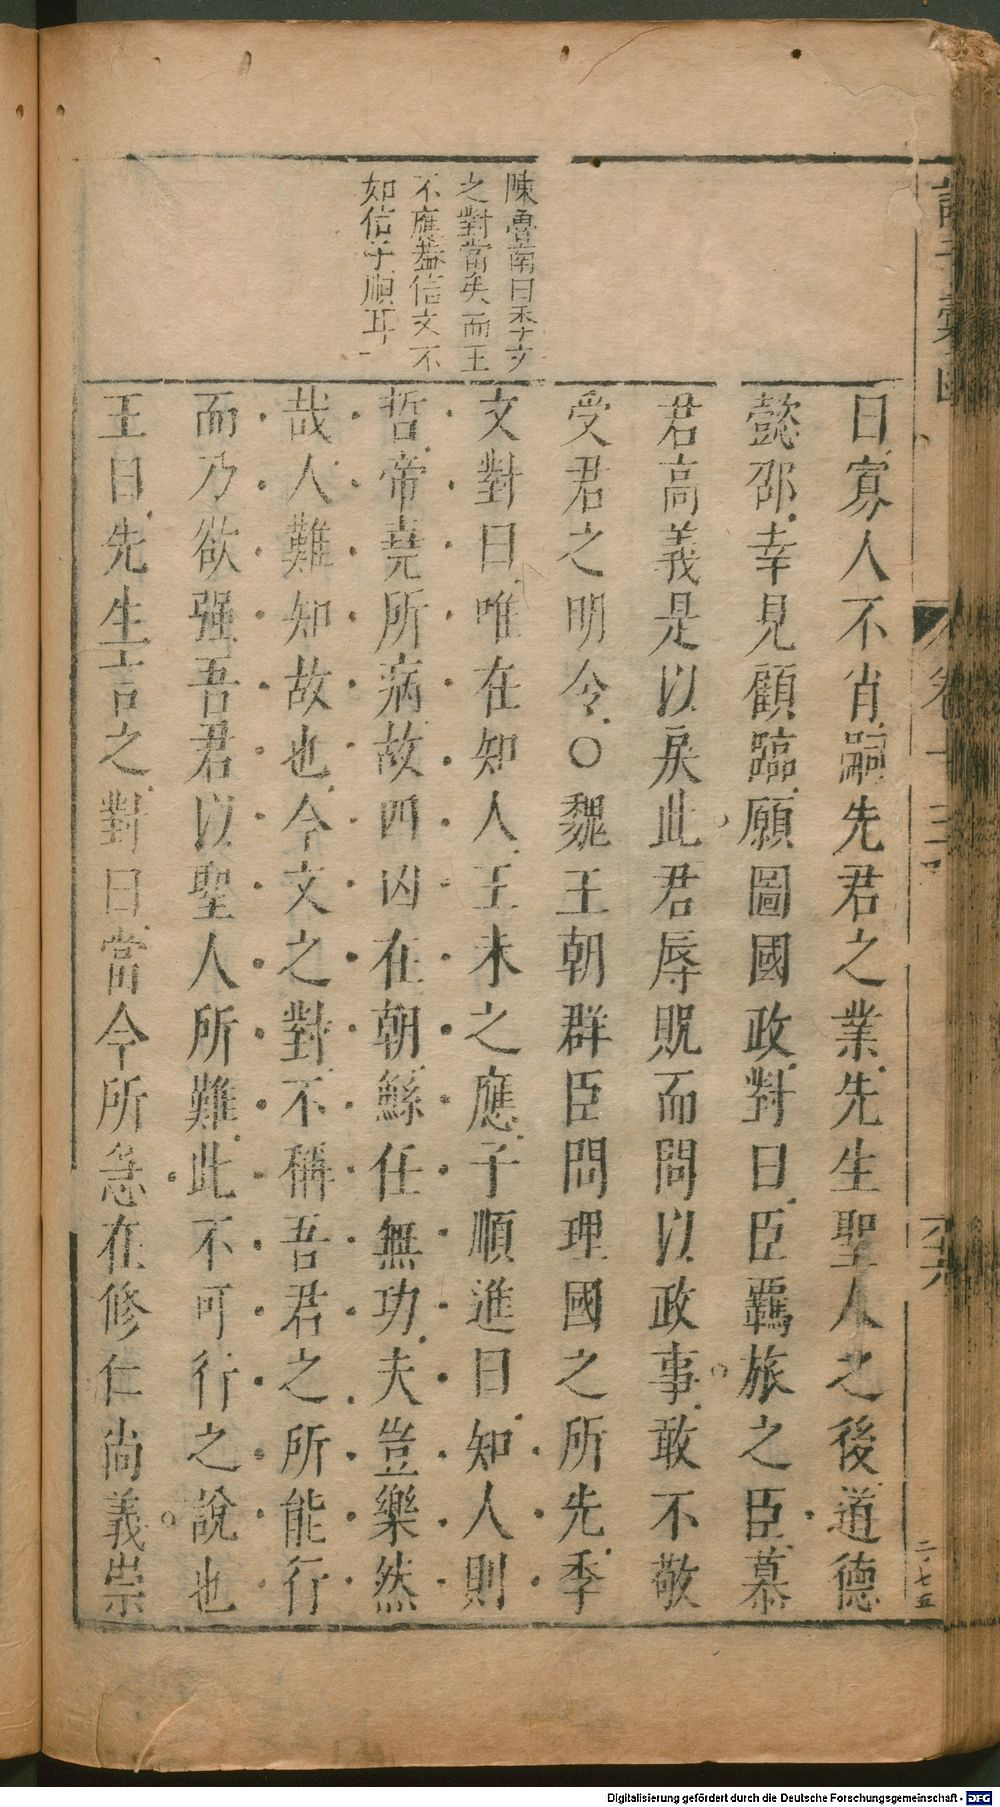 曰寡人不肖嗣先君之業先生聖人之後道德
懿邵幸見顧臨願圖國政對曰臣羈旅之臣慕
君高義是以戾此君辱貺而問以政事敢不敬
受君之明令○魏王朝群臣問理國之所先季
文對曰唯在知人王未之應子順進曰知人則
哲帝堯所病故四凶在朝鯀任無功夫豈樂然
哉人難知故也今文之對不稱吾君之所能行
而乃欲强吾君以聖人所難此不可行之說也
王曰先生言之對曰當今所急在修仁尚義崇
陳魯南曰季文
之對當矣而王
不應葢信文不
如信子順耳
卷十三
六
二七五
Digitalisierung gefördert durch die Deutsche Forschungsgemeinschaft - DFG